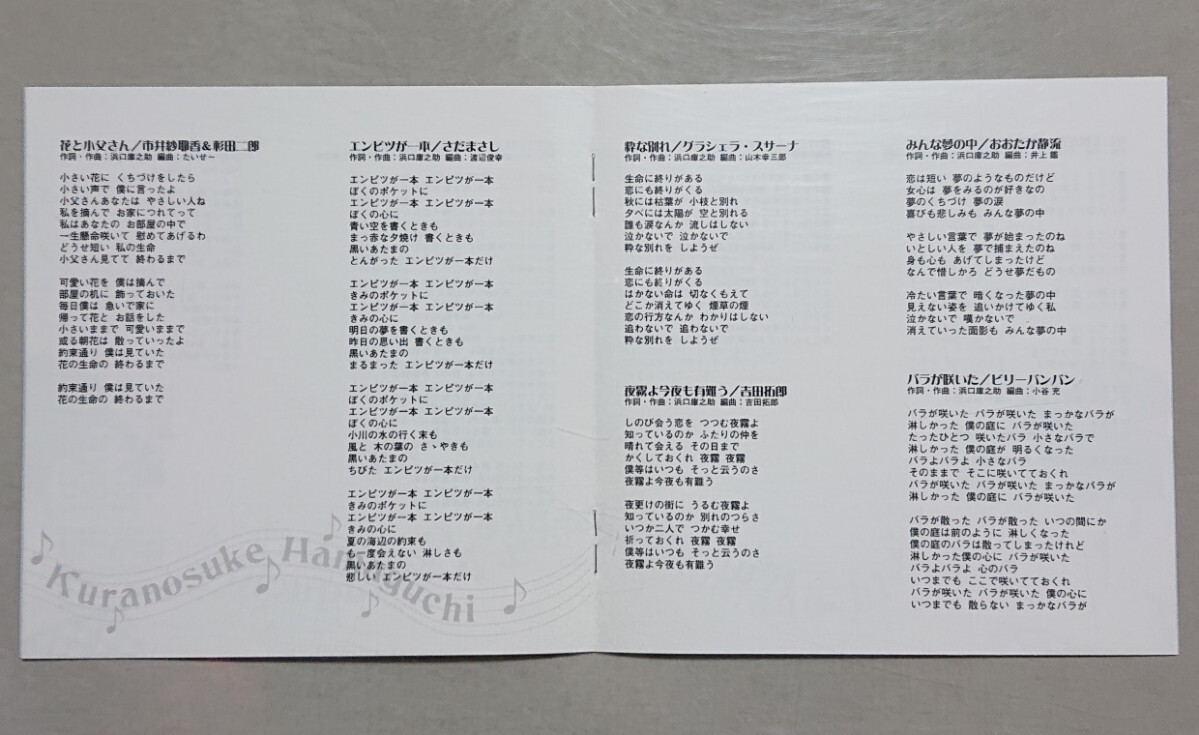 花と小父さん／市井紗耶香＆杉田二郎
作詞・作曲：浜口庫之助 編曲：たいせ～
小さい花に くちづけをしたら
小さい声で 僕に言ったよ
小父さんあなたは やさしい人ね
私を摘んで お家につれてって
私はあなたの お部屋の中で
一生懸命咲いて 慰めてあげるわ
どうせ短い 私の生命
小父さん見てて 終わるまで
可愛い花を 僕は摘んで
部屋の机に 飾っておいた
毎日僕は 急いで家に
帰って花と お話をした
小さいままで 可愛いままで
或る朝花は 散っていったよ
約束通り 僕は見ていた
花の生命の 終わるまで
約束通り 僕は見ていた
花の生命の 終わるまで
エンピツが一本／さだまさし
作詞・作曲：浜口庫之助 編曲：渡辺俊幸
エンピツが一本 エンピツが一本
ぼくのポケットに
エンピツが一本 エンピツが一本
ぼくの心に
青い空を書くときも
まっ赤な夕焼け 書くときも
黒いあたまの
とんがった エンピツが一本だけ
エンピツが一本 エンピツが一本
きみのポケットに
エンピツが一本 エンピツが一本
きみの心に
明日の夢を書くときも
昨日の思い出 書くときも
黒いあたまの
まるまった エンピツが一本だけ
エンピツが一本 エンピツが一本
ぼくのポケットに
エンピツが一本 エンピツが一本
ぼくの心に
小川の水の行く末も
風と 木の葉の さゝやきも
黒いあたまの
ちびた エンピツが一本だけ
エンピツが一本 エンピツが一本
きみのポケットに
エンピツが一本 エンピツが一本
きみの心に
夏の海辺の約束も
も一度会えない 淋しさも
黒いあたまの
悲しい エンピツが一本だけ
Kuranosuke Hamaguchi
粋な別れ／グラシェラ・スサーナ
作詞・作曲：浜口庫之助 編曲：山木幸三郎
生命に終りがある
恋にも終りがくる
秋には枯葉が 小枝と別れ
夕べには太陽が 空と別れる
誰も涙なんか 流しはしない
泣かないで 泣かないで
粋な別れを しようぜ
生命に終りがある
恋にも終りがくる
はかない命は 切なくもえて
どこか消えてゆく 煙草の煙
恋の行方なんか わかりはしない
追わないで 追わないで
粋な別れを しようぜ
夜霧よ今夜も有難う／吉田拓郎
作詞・作曲：浜口庫之助 編曲：吉田拓郎
しのび会う恋を つつむ夜霧よ
知っているのか ふたりの仲を
晴れて会える その日まで
かくしておくれ 夜霧 夜霧
僕等はいつも そっと云うのさ
夜霧よ今夜も有難う
夜更けの街に うるむ夜霧よ
知っているのか 別れのつらさ
いつか二人で つかむ幸せ
祈っておくれ 夜霧 夜霧
僕等はいつも そっと云うのさ
夜霧よ今夜も有難う
みんな夢の中／おおたか静流
作詞・作曲：浜口庫之助 編曲：井上 鑑
恋は短い 夢のようなものだけど
女心は 夢をみるのが好きなの
夢のくちづけ 夢の涙
喜びも悲しみも みんな夢の中
やさしい言葉で 夢が始まったのね
いとしい人を 夢で捕まえたのね
身も心も あげてしまったけど
なんで惜しかろ どうせ夢だもの
冷たい言葉で 暗くなった夢の中
見えない姿を 追いかけてゆく私
泣かないで 嘆かないで
消えていった面影も みんな夢の中
バラが咲いた／ビリーバンバン
作詞・作曲：浜口庫之助 編曲：小谷 充
バラが咲いた バラが咲いた まっかなバラが
淋しかった 僕の庭に バラが咲いた
たったひとつ 咲いたバラ 小さなバラで
淋しかった 僕の庭が 明るくなった
バラよバラよ 小さなバラ
そのままで そこに咲いてておくれ
バラが咲いた バラが咲いた まっかなバラが
淋しかった 僕の庭に バラが咲いた
バラが散った バラが散った いつの間にか
僕の庭は前のように 淋しくなった
僕の庭のバラは散ってしまったけれど
淋しかった僕の心に バラが咲いた
バラよバラよ 心のバラ
いつまでも ここで咲いてておくれ
バラが咲いた バラが咲いた 僕の心に
いつまでも 散らない まっかなバラが